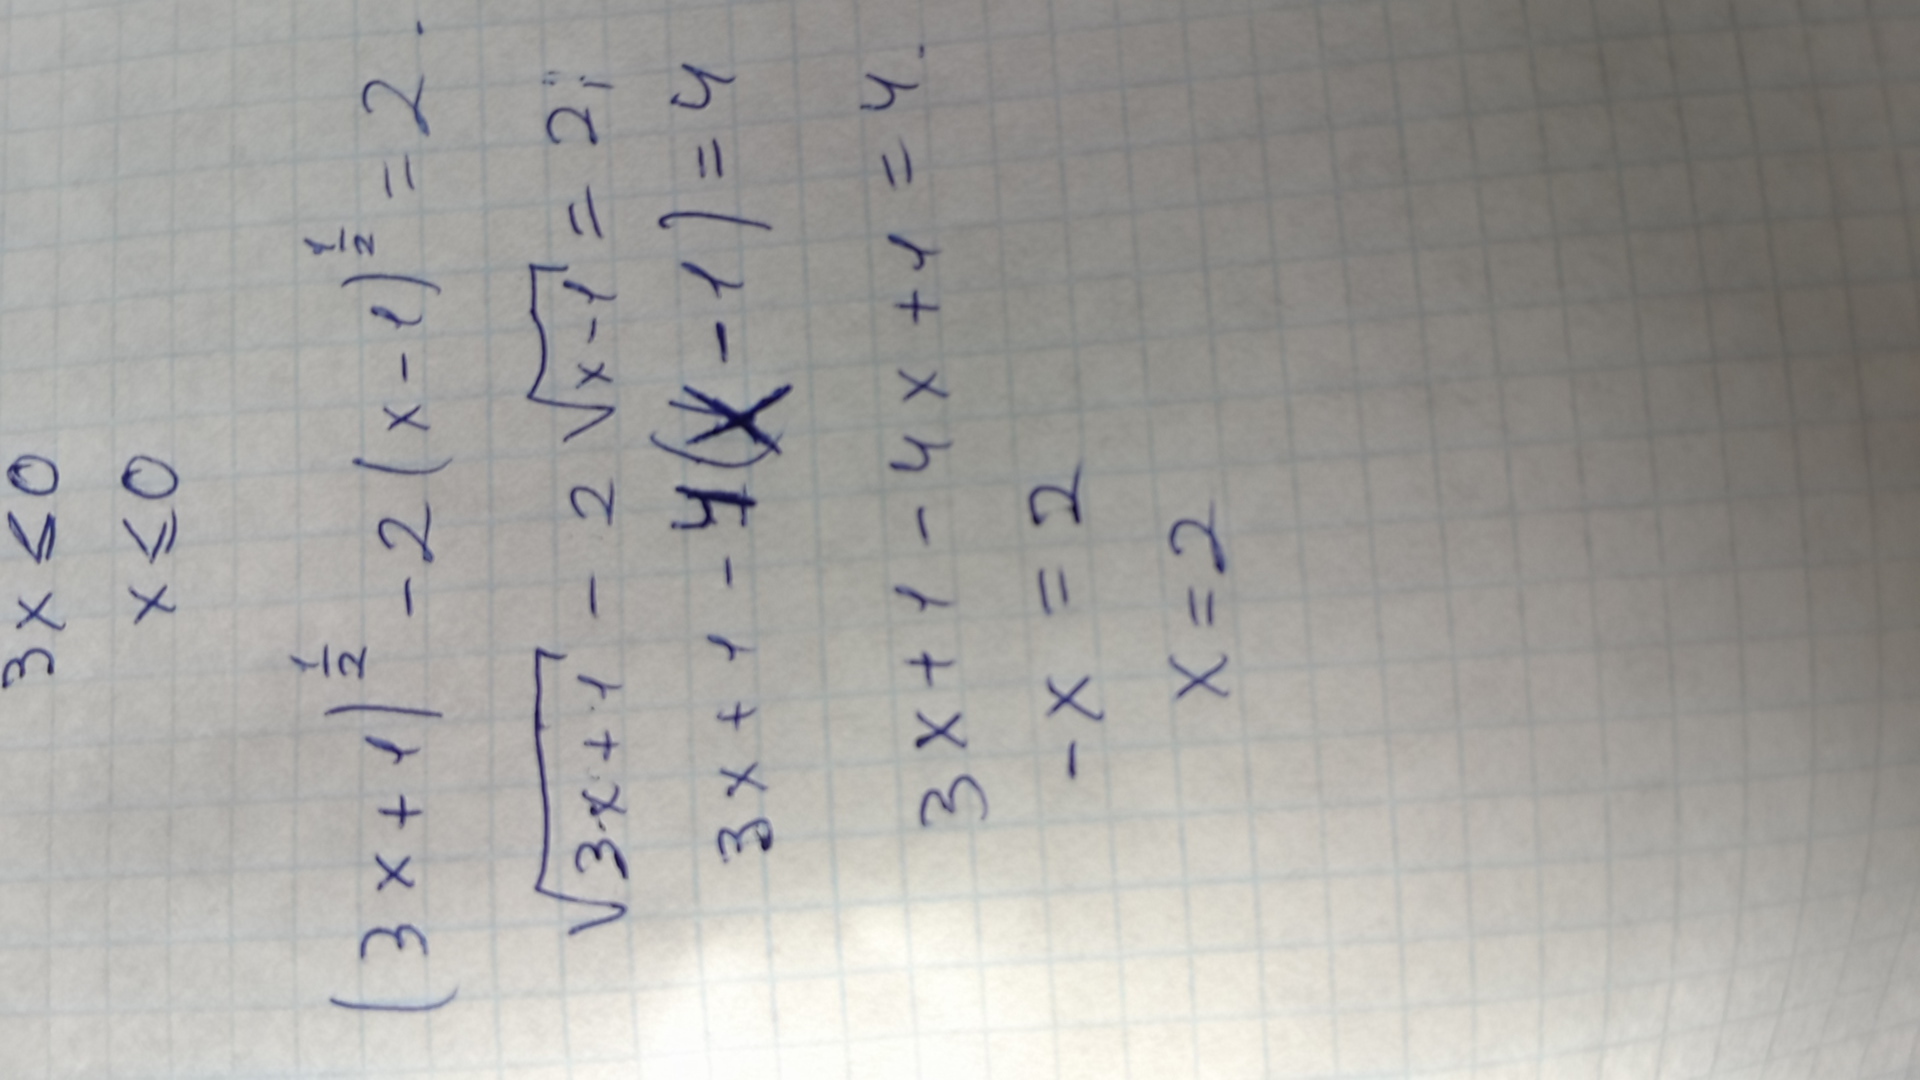 3x ≤ 0
x ≤ 0
(3x+1)^½ - 2(x-1)^½ = 2.
√3x+1 - 2√x-1 = 2;
3x+1 - 4(x-1) = 4
3x+1 - 4x+1 = 4.
-x = 2
x = 2